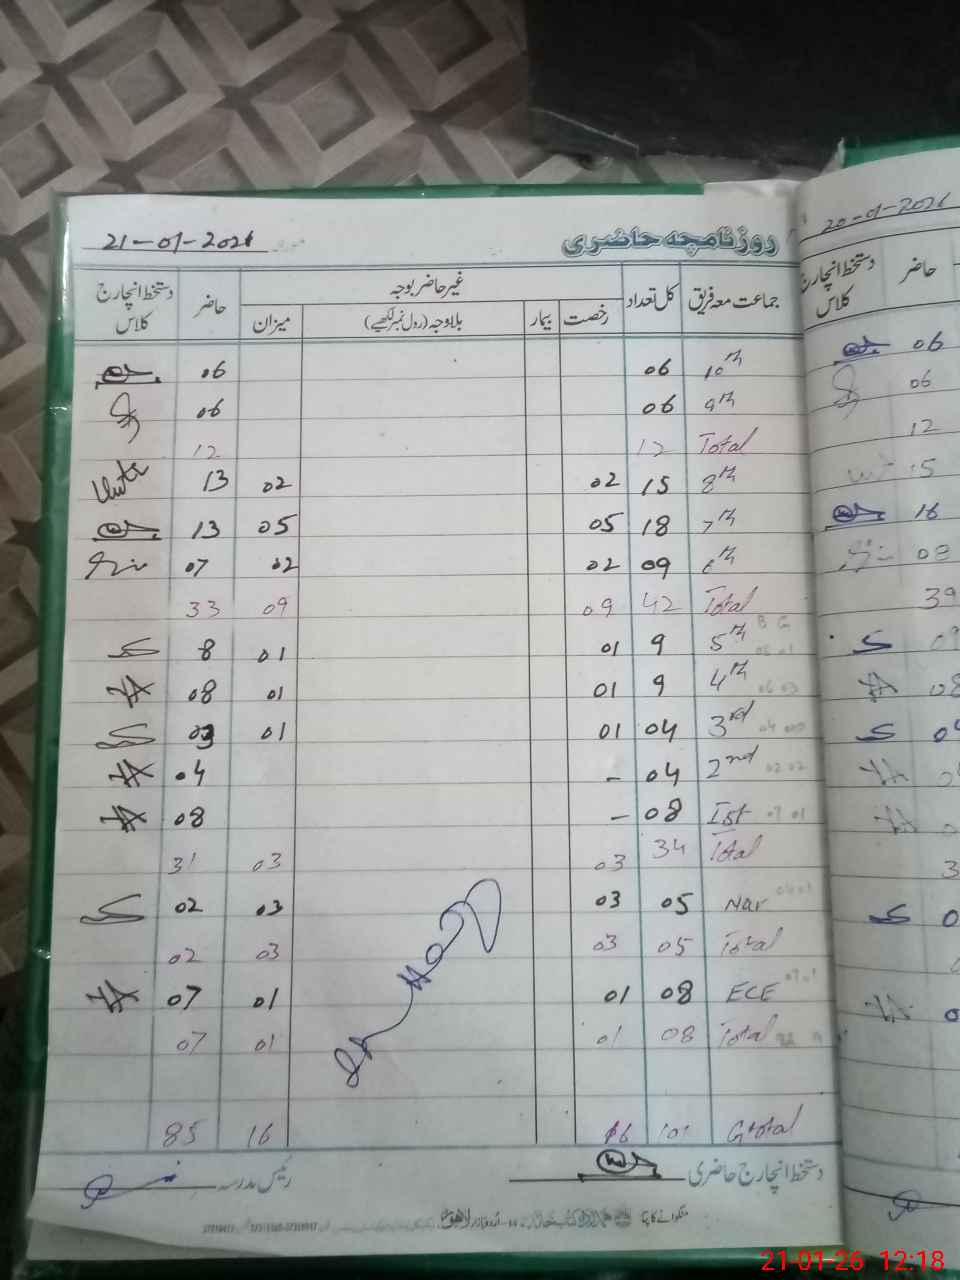 روزنامچہ حاضری 21-01-2026
جماعت معہ فریق کل تعداد غیر حاضر بوجہ حاضر دستخط انچارج کلاس
رخصت بیمار بلاوجہ (رول نمبر لکھیے) میزان
10th 06 06
9th 06 06
Total 12 12
8th 15 02 02 13
7th 18 05 05 13
6th 09 02 02 07
Total 42 09 09 33
B G
5th 9 01 01 8
4th 9 01 01 08
3rd 04 01 01 03
2nd 02 02 04 - 04
Ist 07 01 08 - 08
Total 34 03 03 31
Nur 05 03 03 02
Total 05 03 03 02
ECE 08 01 01 07
Total 08 01 01 07
G total 101 16 16 85
دستخط انچارج حاضری رئیس مدرسہ
منگوانے کا پتا اردو بازار لاہور
20-01-2026
حاضر دستخط انچارج کلاس
06
06
12
15
16
08
39
21-01-26 12:18